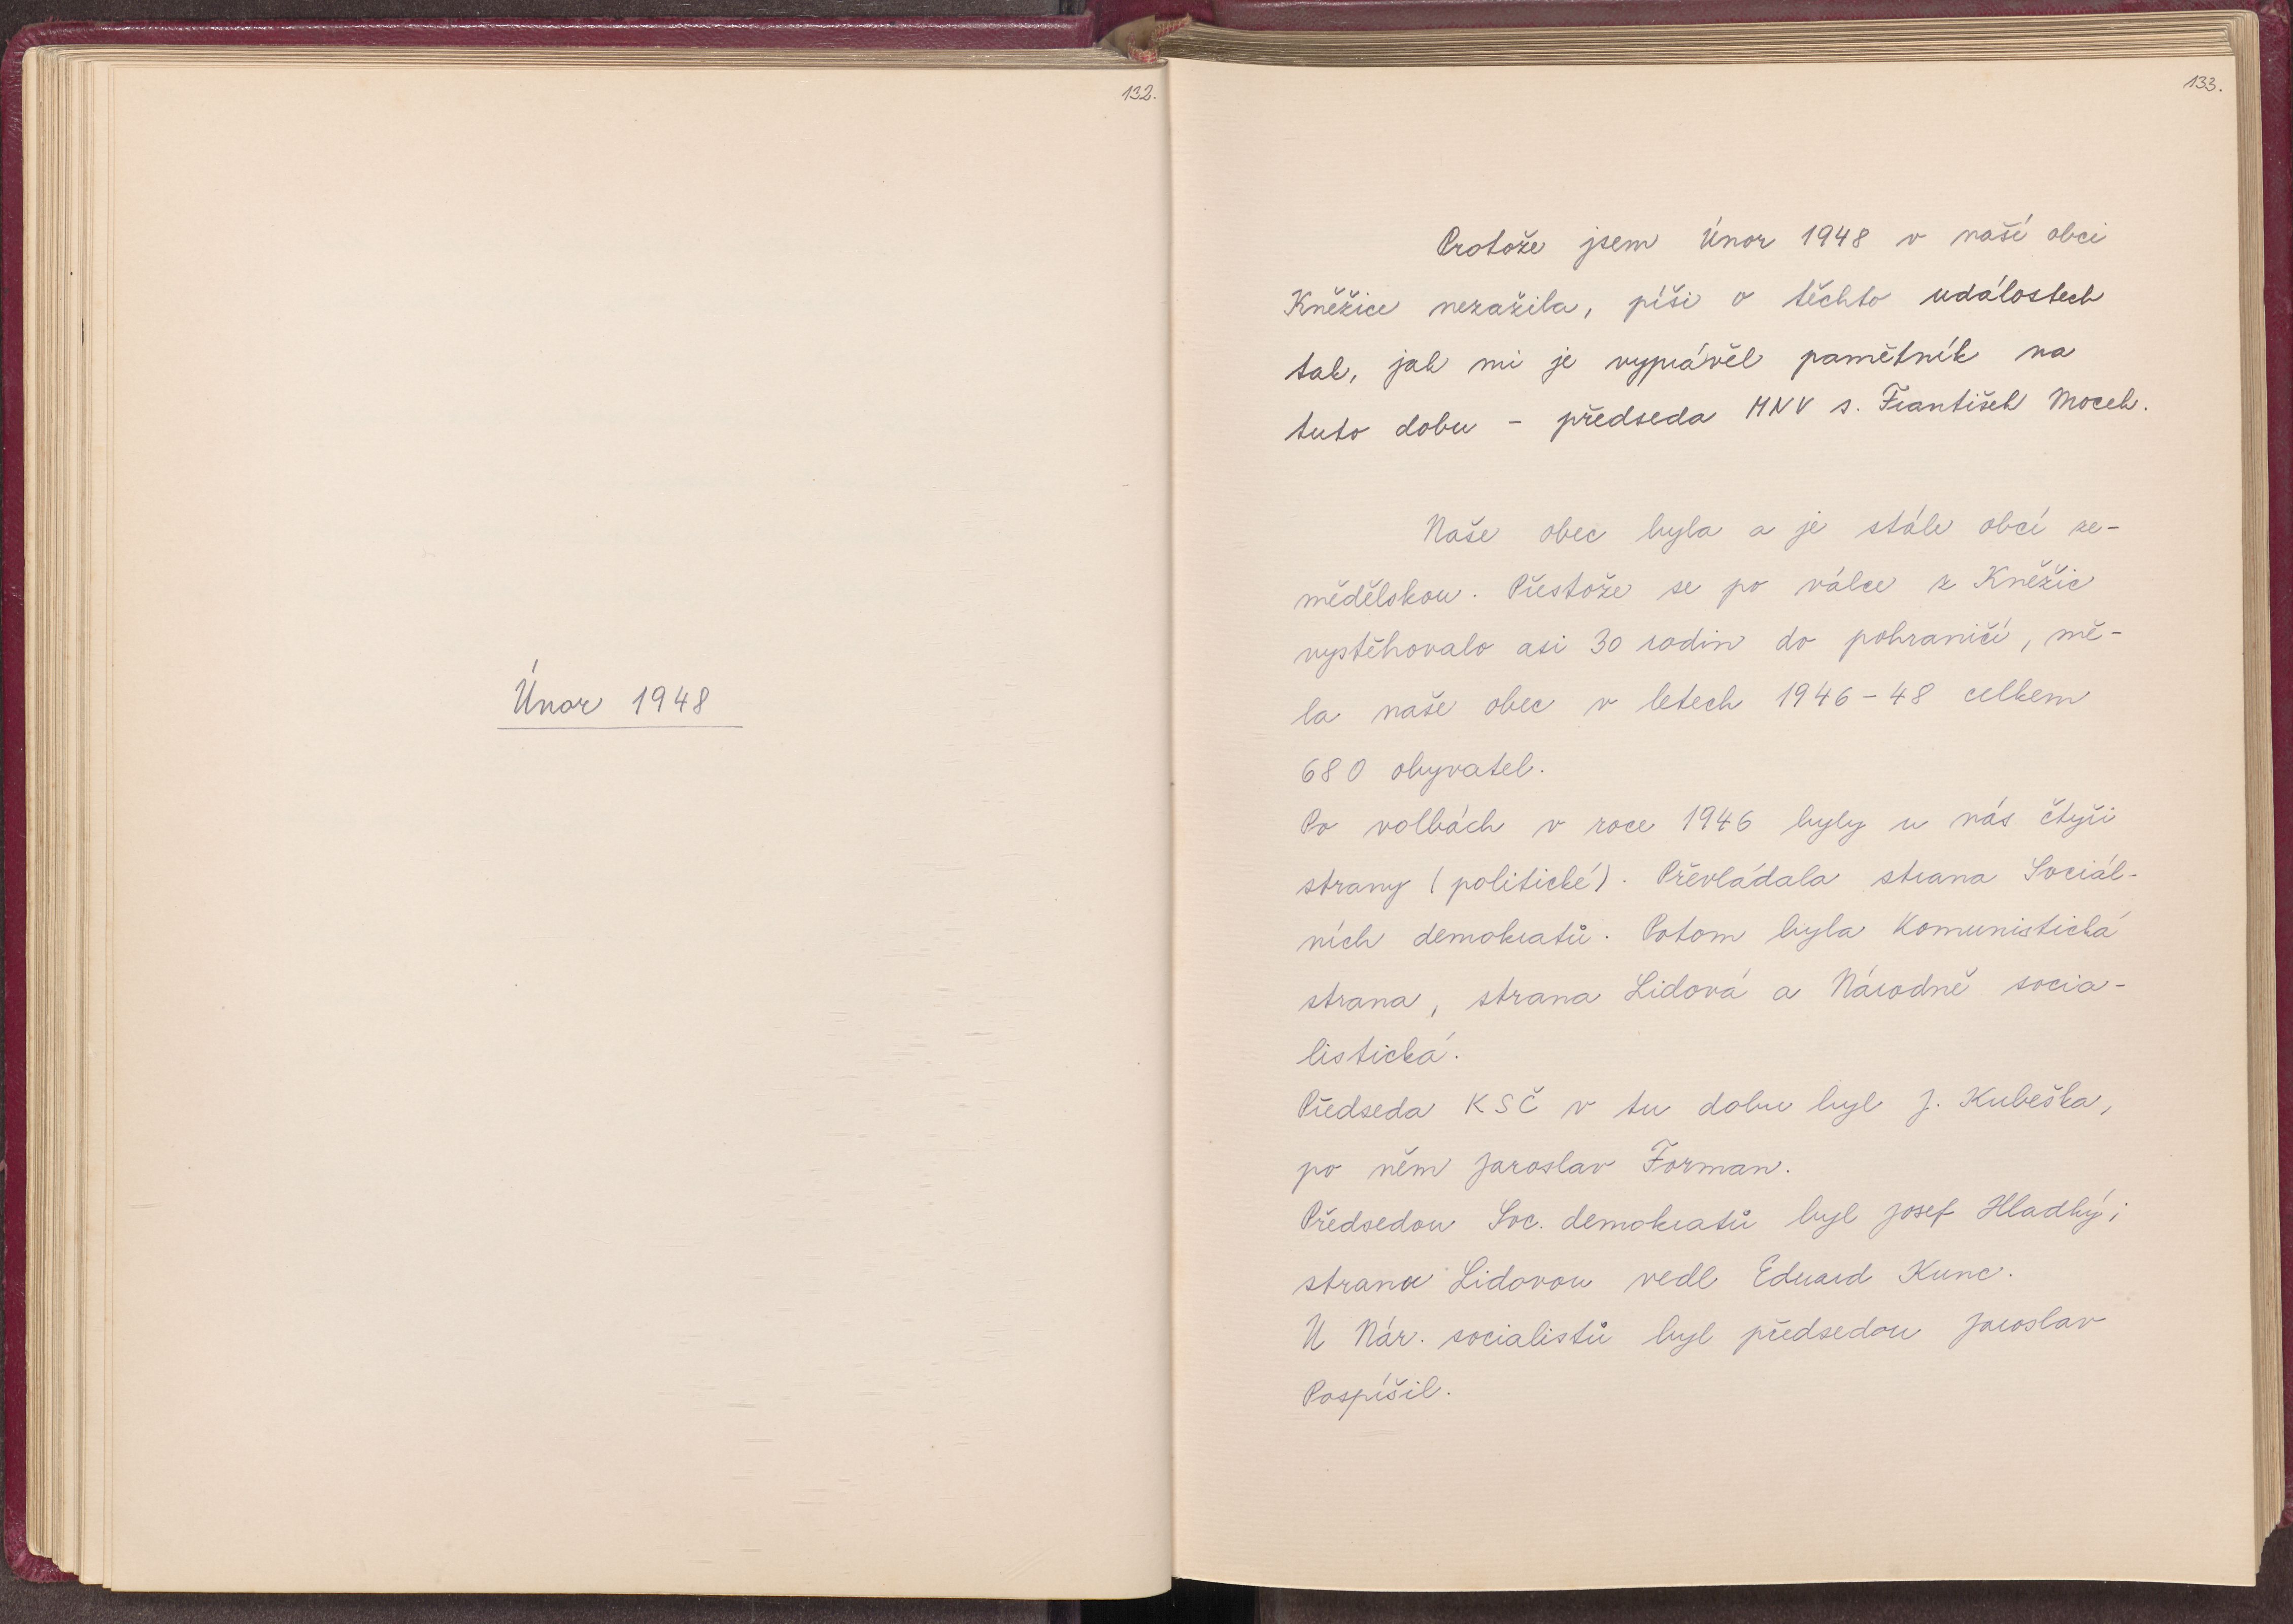 132.
Únor 1948
133.
Protože jsem Únor 1948 v naší obci
Kněžice nezažila, píši o těchto událostech
tak, jak mi je vyprávěl pamětník na
tuto dobu - předseda MNV s. František Mocek.
Naše obec byla a je stále obcí ze-
mědělskou. Přestože se po válce z Kněžic
vystěhovalo asi 30 rodin do pohraničí, mě-
la naše obec v letech 1946-48 celkem
680 obyvatel.
Po volbách v roce 1946 byly u nás čtyři
strany (politické). Převládala strana Sociál-
ních demokratů. Potom byla Komunistická
strana, strana Lidová a Národně socia-
listická.
Předseda KSČ v tu dobu byl J. Kubeška,
po něm Jaroslav Forman.
Předsedou Soc. demokratů byl Josef Hladký;
strana Lidovou vedl Eduard Kunc.
U Nár. socialistů byl předsedou Jaroslav
Pospíšil.